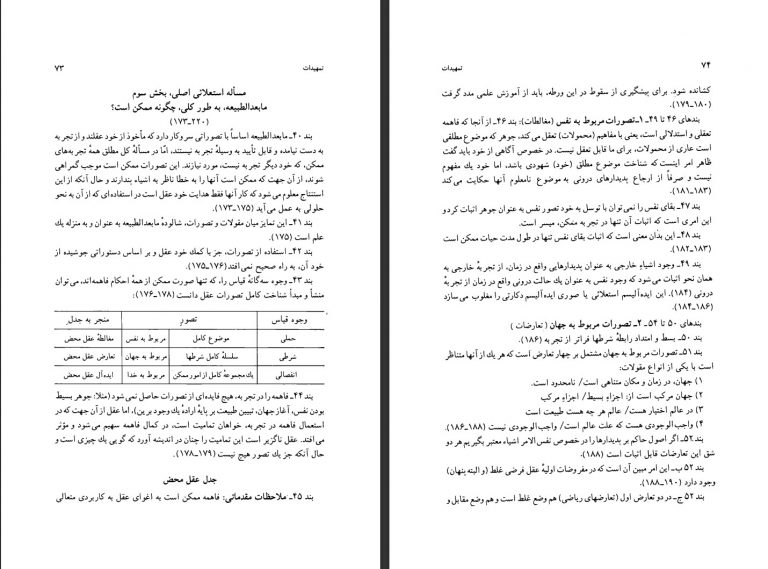 تمهیدات ۷۳
مسأله استعلائی اصلی، بخش سوم
مابعدالطبیعه، به طور کلی، چگونه ممکن است؟
(۱۷۳ـ۲۲۰)
بند ۴۰ـ مابعدالطبیعه اساساً با تصوراتی سر و کار دارد که مأخوذ از خود عقلند و از تجر به
به دست نیامده و قابل تأیید به وسیلهٔ تجر به نیستند، امّا در مسألهٔ کل مطلق همهٔ تجر به‌های
ممکن، که خود دیگر تجر به نیست، مورد نیازند. این تصورات ممکن است موجب گمراهی
شوند، از آن جهت که ممکن است آنها را به خطا ناظر به اشیاء بپندارند و حال آنکه از این
استنتاج معلوم می‌شود که کار آنها فقط هدایت خود عقل است در استفاده‌ای که از آن به نحو
حلولی به عمل می‌آید (۱۷۳ـ۱۷۵)
بند ۴۱ـ این تمایز میان مقولات و تصورات، شالودهٔ مابعدالطبیعه به عنوان و به منزله یك
علم است (۱۷۵)
بند ۴۲ـ استفاده از تصورات، جز با کمك خود عقل و بر اساس دستوراتی جوشیده از
خود آن، به راه صحیح نمی‌افتد (۱۷۵ـ۱۷۶)
بند ۴۳ـ وجوه سه‌گانهٔ قیاس را، که تنها صورت ممکن از همهٔ احکام فاهمه‌اند، می‌توان
منشأ و مبدأ شناخت کامل تصورات عقل دانست (۱۷۶ـ۱۷۸):
وجوه قیاس تصور منجر به جدل
حملی موضوع کامل مربوط به نفس مغالطهٔ عقل محض
شرطی سلسلهٔ کامل شرطها مربوط به جهان تعارض عقل محض
انفصالی یك مجموعهٔ کامل از امور ممکن مربوط به خدا ایده‌آل عقل محض
بند ۴۴ـ فاهمه را در تجر به، هیچ فایده‌ای از تصورات حاصل نمی‌شود (مثلا: جوهر بسیط
بودن نفس، آغاز جهان، تبیین طبیعت بر پایهٔ ارادهٔ یك وجود برین)، اما عقل از آن جهت که در
استعمال فاهمه در تجر به، خواهان تمامیت است، در کمال فاهمه سهیم می‌شود و مؤثر
می‌افتد. عقل ناگزیر است این تمامیت را چنان در اندیشه آورد که گویی یك چیزی است و
حال آنکه جز یك تصور هیچ نیست (۱۷۸ـ۱۷۹)
جدل عقل محض
بند ۴۵ـ ملاحظات مقدماتی: فاهمه ممکن است به اغوای عقل به کاربردی متعالی
۷۴ تمهیدات
کشانده شود. برای پیشگیری از سقوط در این ورطه، باید از آموزش علمی مدد گرفت
(۱۷۹ـ۱۸۰)
بندهای ۴۶ تا ۴۹ـ ۱ـ تصورات مربوط به نفس (مغالطات): بند ۴۶ـ از آنجا که فاهمه
تعقلی و استدلالی است، یعنی با مفاهیم (محمولات) تعقل می‌کند، جوهر که موضوع مطلقی
است عاری از محمولات، برای ما قابل تعقل نیست. در خصوص آگاهی از خود باید گفت
ظاهر امر اینست که شناخت موضوع مطلق (خود) شهودی باشد، اما خود یك مفهوم
نیست و صرفاً از ارجاع پدیدارهای درونی به موضوع نامعلوم آنها حکایت می‌کند
(۱۸۱ـ۱۸۳)
بند ۴۷ـ بقای نفس را نمی‌توان با توسل به خود تصور نفس به عنوان جوهر اثبات کرد و
این امری است که اثبات آن تنها در تجر به ممکن، میسر است.
بند ۴۸ـ این بدان معنی است که اثبات بقای نفس تنها در طول مدت حیات ممکن است
(۱۸۲ـ۱۸۳)
بند ۴۹ـ وجود اشیاء خارجی به عنوان پدیدارهایی واقع در زمان، از تجر بهٔ خارجی به
همان نحو اثبات می‌شود که وجود نفس به عنوان یك حالت درونی واقع در زمان از تجر بهٔ
درونی (۱۸۴). این ایده‌آلیسم استعلائی یا صوری ایده‌آلیسم دکارتی را مغلوب می‌سازد
(۱۸۴ـ۱۸۶)
بندهای ۵۰ تا ۵۴ـ ۲ـ تصورات مربوط به جهان (تعارضات)
بند ۵۰ـ بسط و امتداد رابطهٔ شرطها فراتر از تجر به (۱۸۶).
بند ۵۱ـ تصورات مربوط به جهان مشتمل بر چهار تعارض است که هر یك از آنها متناظر
است با یکی از انواع مقولات:
۱) جهان، در زمان و مکان متناهی است/ نامحدود است.
۲) جهان مرکب است از: اجزاء بسیط/ اجزاء مرکب
۳) در عالم اختیار هست/ عالم هر چه هست طبیعت است
۴) واجب‌الوجودی هست که علت عالم است/ واجب‌الوجودی نیست (۱۸۶ـ۱۸۸).
بند ۵۲ـ اگر اصول حاکم بر پدیدارها را در خصوص نفس الامر اشیاء معتبر بگیریم هر دو
شق این تعارضات قابل اثبات است (۱۸۸)
بند ۵۲ ب ـ این امر مبین آن است که در مفروضات اولیهٔ عقل فرضی غلط (و البته پنهان)
وجود دارد (۱۸۸ـ۱۹۰)
بند ۵۲ ج ـ در دو تعارض اول (تعارضهای ریاضی) هم وضع غلط است و هم وضع مقابل و